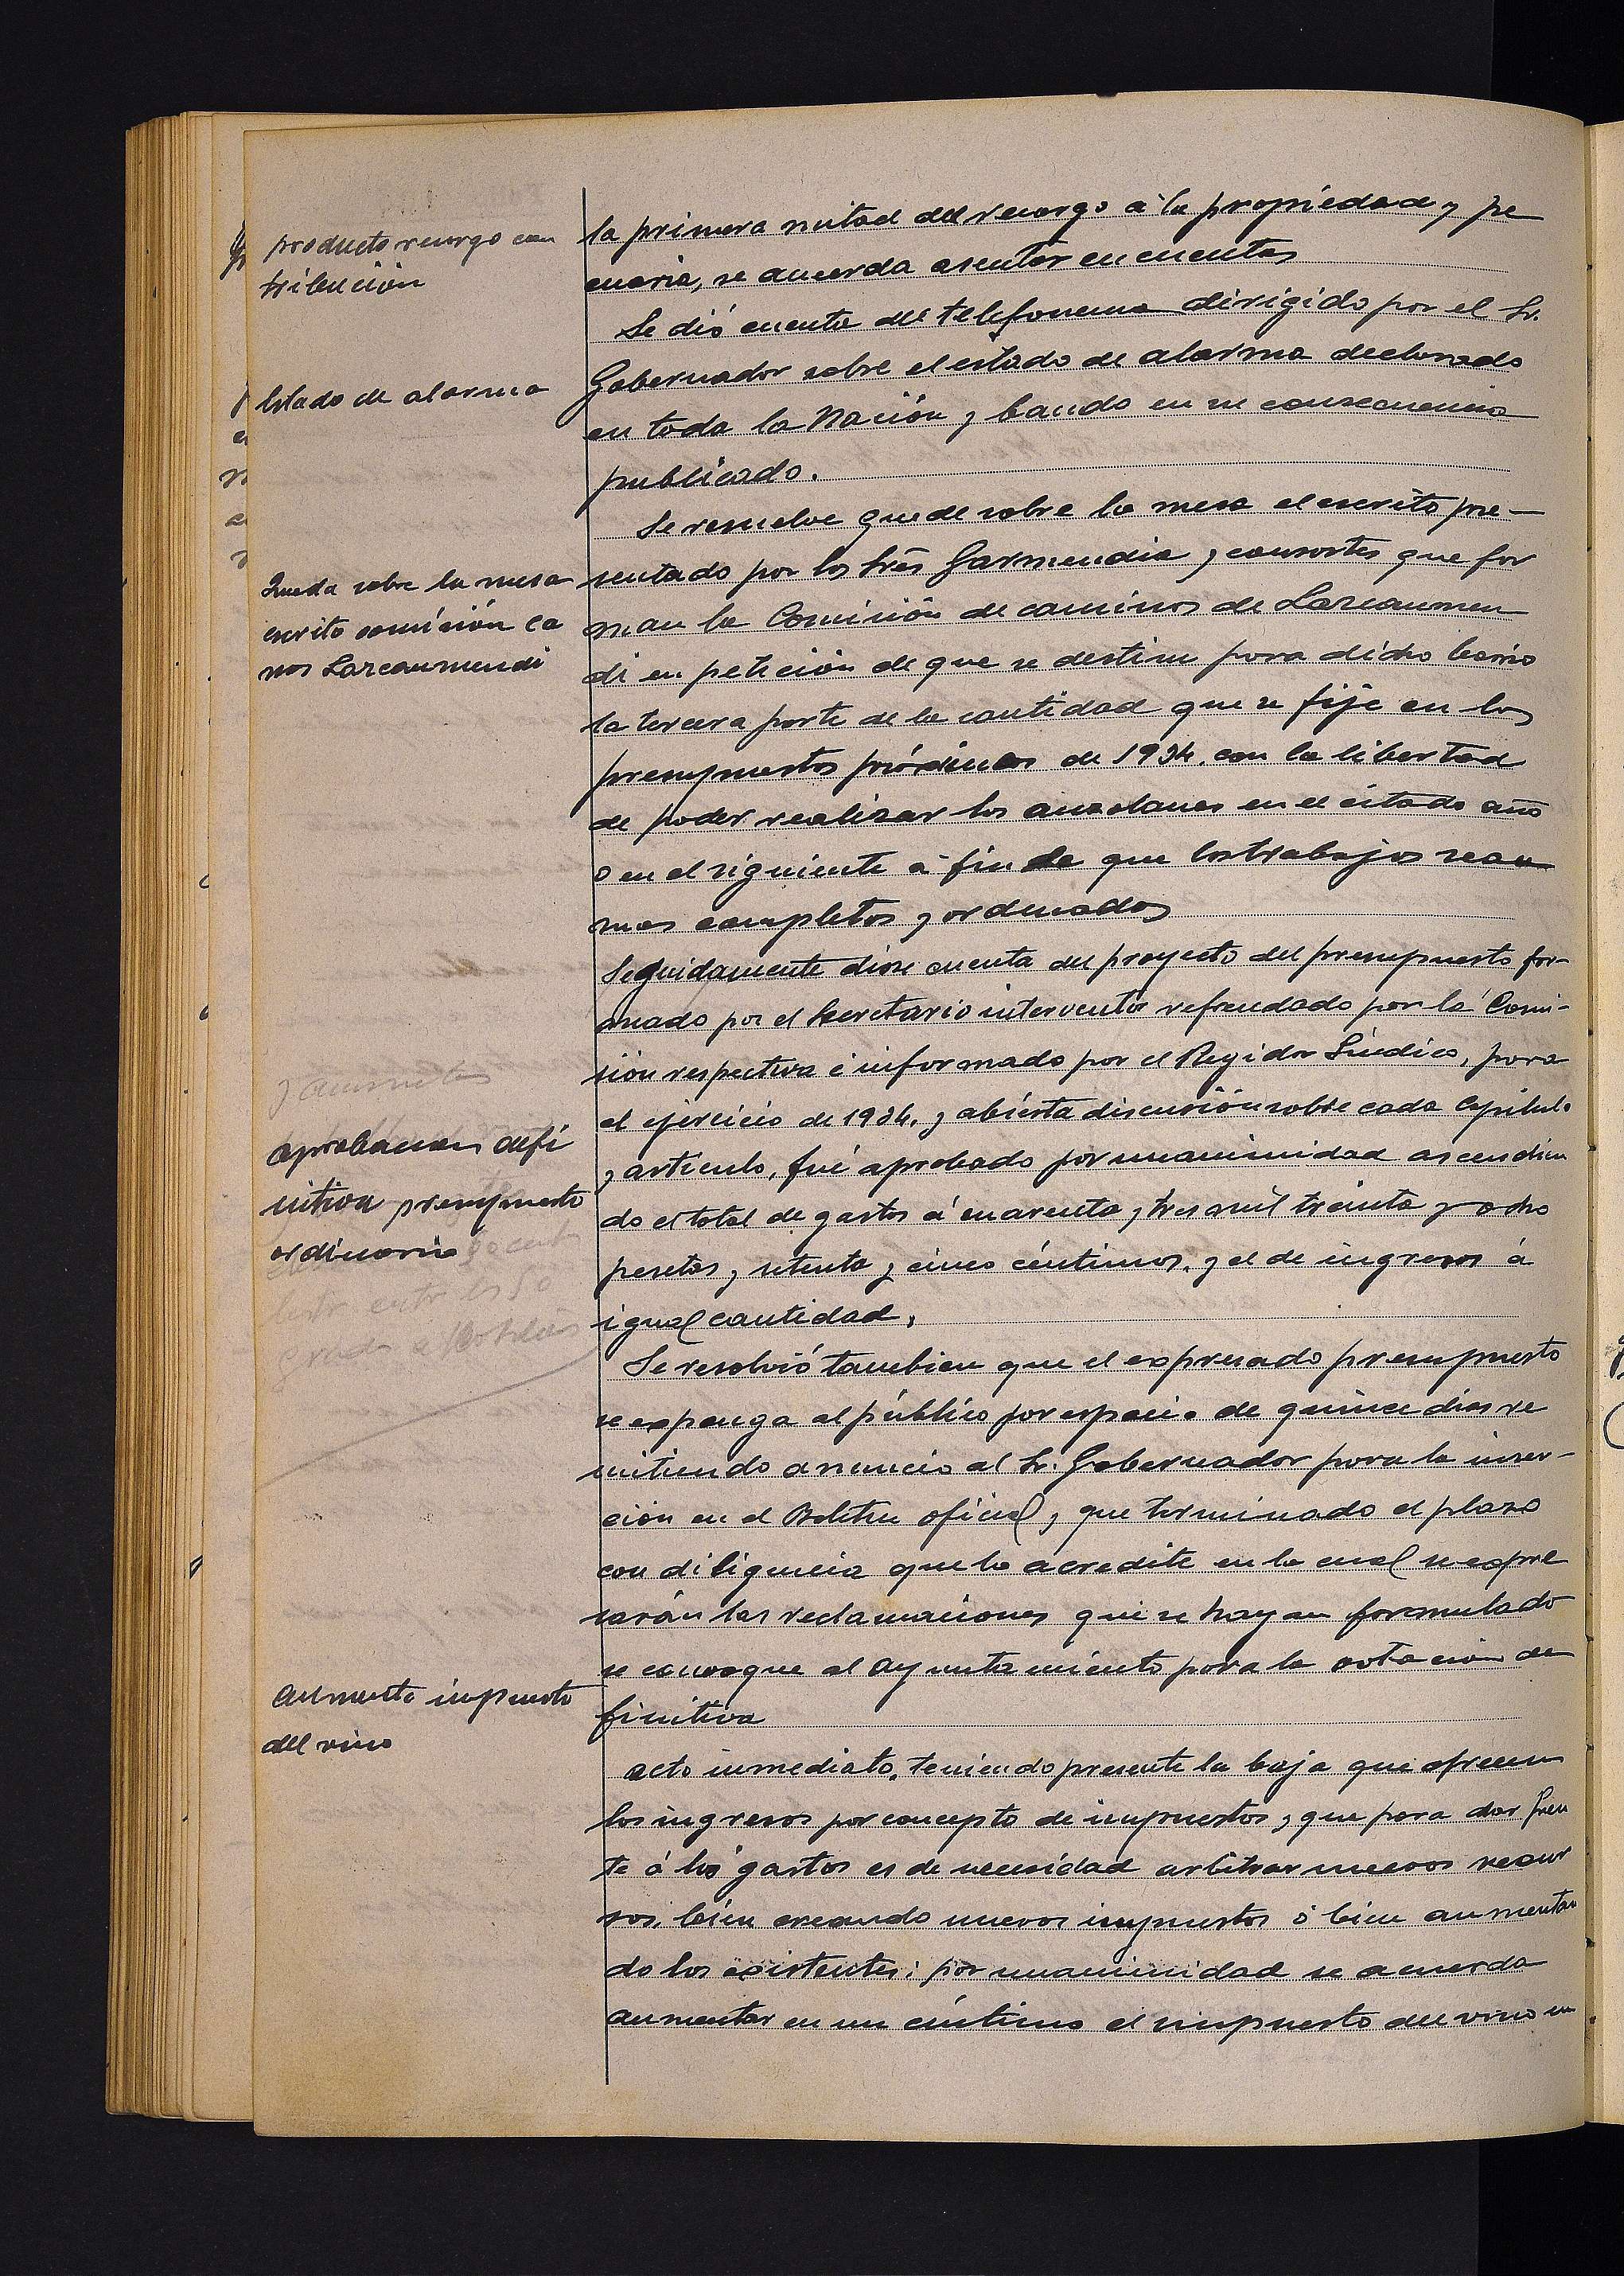 producto recargo con
tribución
la primera mitad del recargo á la propiedad y pe
cuaria, se acuerda asentar en cuentas
Se dió cuenta del telefonema dirigido por el Sr.
Estado de alarma
Gobernador sobre el estado de alarma declarado
en toda la Nación y bando en su consecuencia
publicado.
Se resuelve quede sobre la mesa el escrito pre-
Queda sobre la mesa
escrito comisión ca
nos Lazcanmendi
sentado por los Srēs Garmendia y consortes que for
man la Comisión de caminos de Lazcanmen
di en petición de que se destine para dicho barrio
la tercera parte de la cantidad que se fije en los
presupuestos próximos de 1934. con la libertad
de poder realizar los auzolanes en el citado año
o en el siguiente á fin de que los trabajos sean
mas completos y ordenados
Seguidamente dióse cuenta del proyecto del presupuesto for-
mado por el Secretario interventor refrendado por la Comi-
sión respectiva é informado por el Regidor Síndico, para
el ejercicio de 1934. y abierta discusión sobre cada Capítulo
aprobacion defi
nitiva presupuesto
ordinario
y artículo, fué aprobado por unanimidad ascendien
do el total de gastos á cuarenta y tres mil treinta y ocho
pesetas y setenta y cinco céntimos, y el de ingresos á
igual cantidad.
Se resolvió tambien que el expresado presupuesto
se exponga al público por espacio de quince dias re
mitiendo anuncio al Sr. Gobernador para la inser-
ción en el Boletin oficial y que terminado el plazo
con diligencia que lo acredite en la cual se expre
sarán las reclamaciones que se hayan formulado
se convoque al Ayuntamiento para la votación de
finitiva
Aumento impuesto
del vino
Acto inmediato, teniendo presente la baja que ofrecen
los ingresos por concepto de impuestos y que para dar fren
te á los gastos es de necesidad arbitrar nuevos recur
sos, bien creando nuevos impuestos ó bien aumentan
do los existentes; por unanimidad se acuerda
aumentar en un céntimo el impuesto del vino en